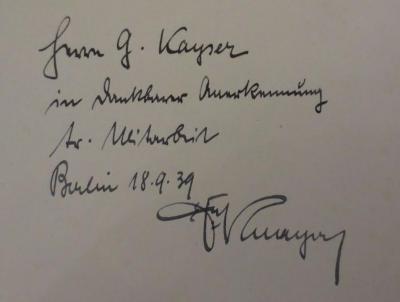 Herrn G. Kayser
in dankbarer Anerkennung
tr. Mitarbeit
Berlin 18.9.39